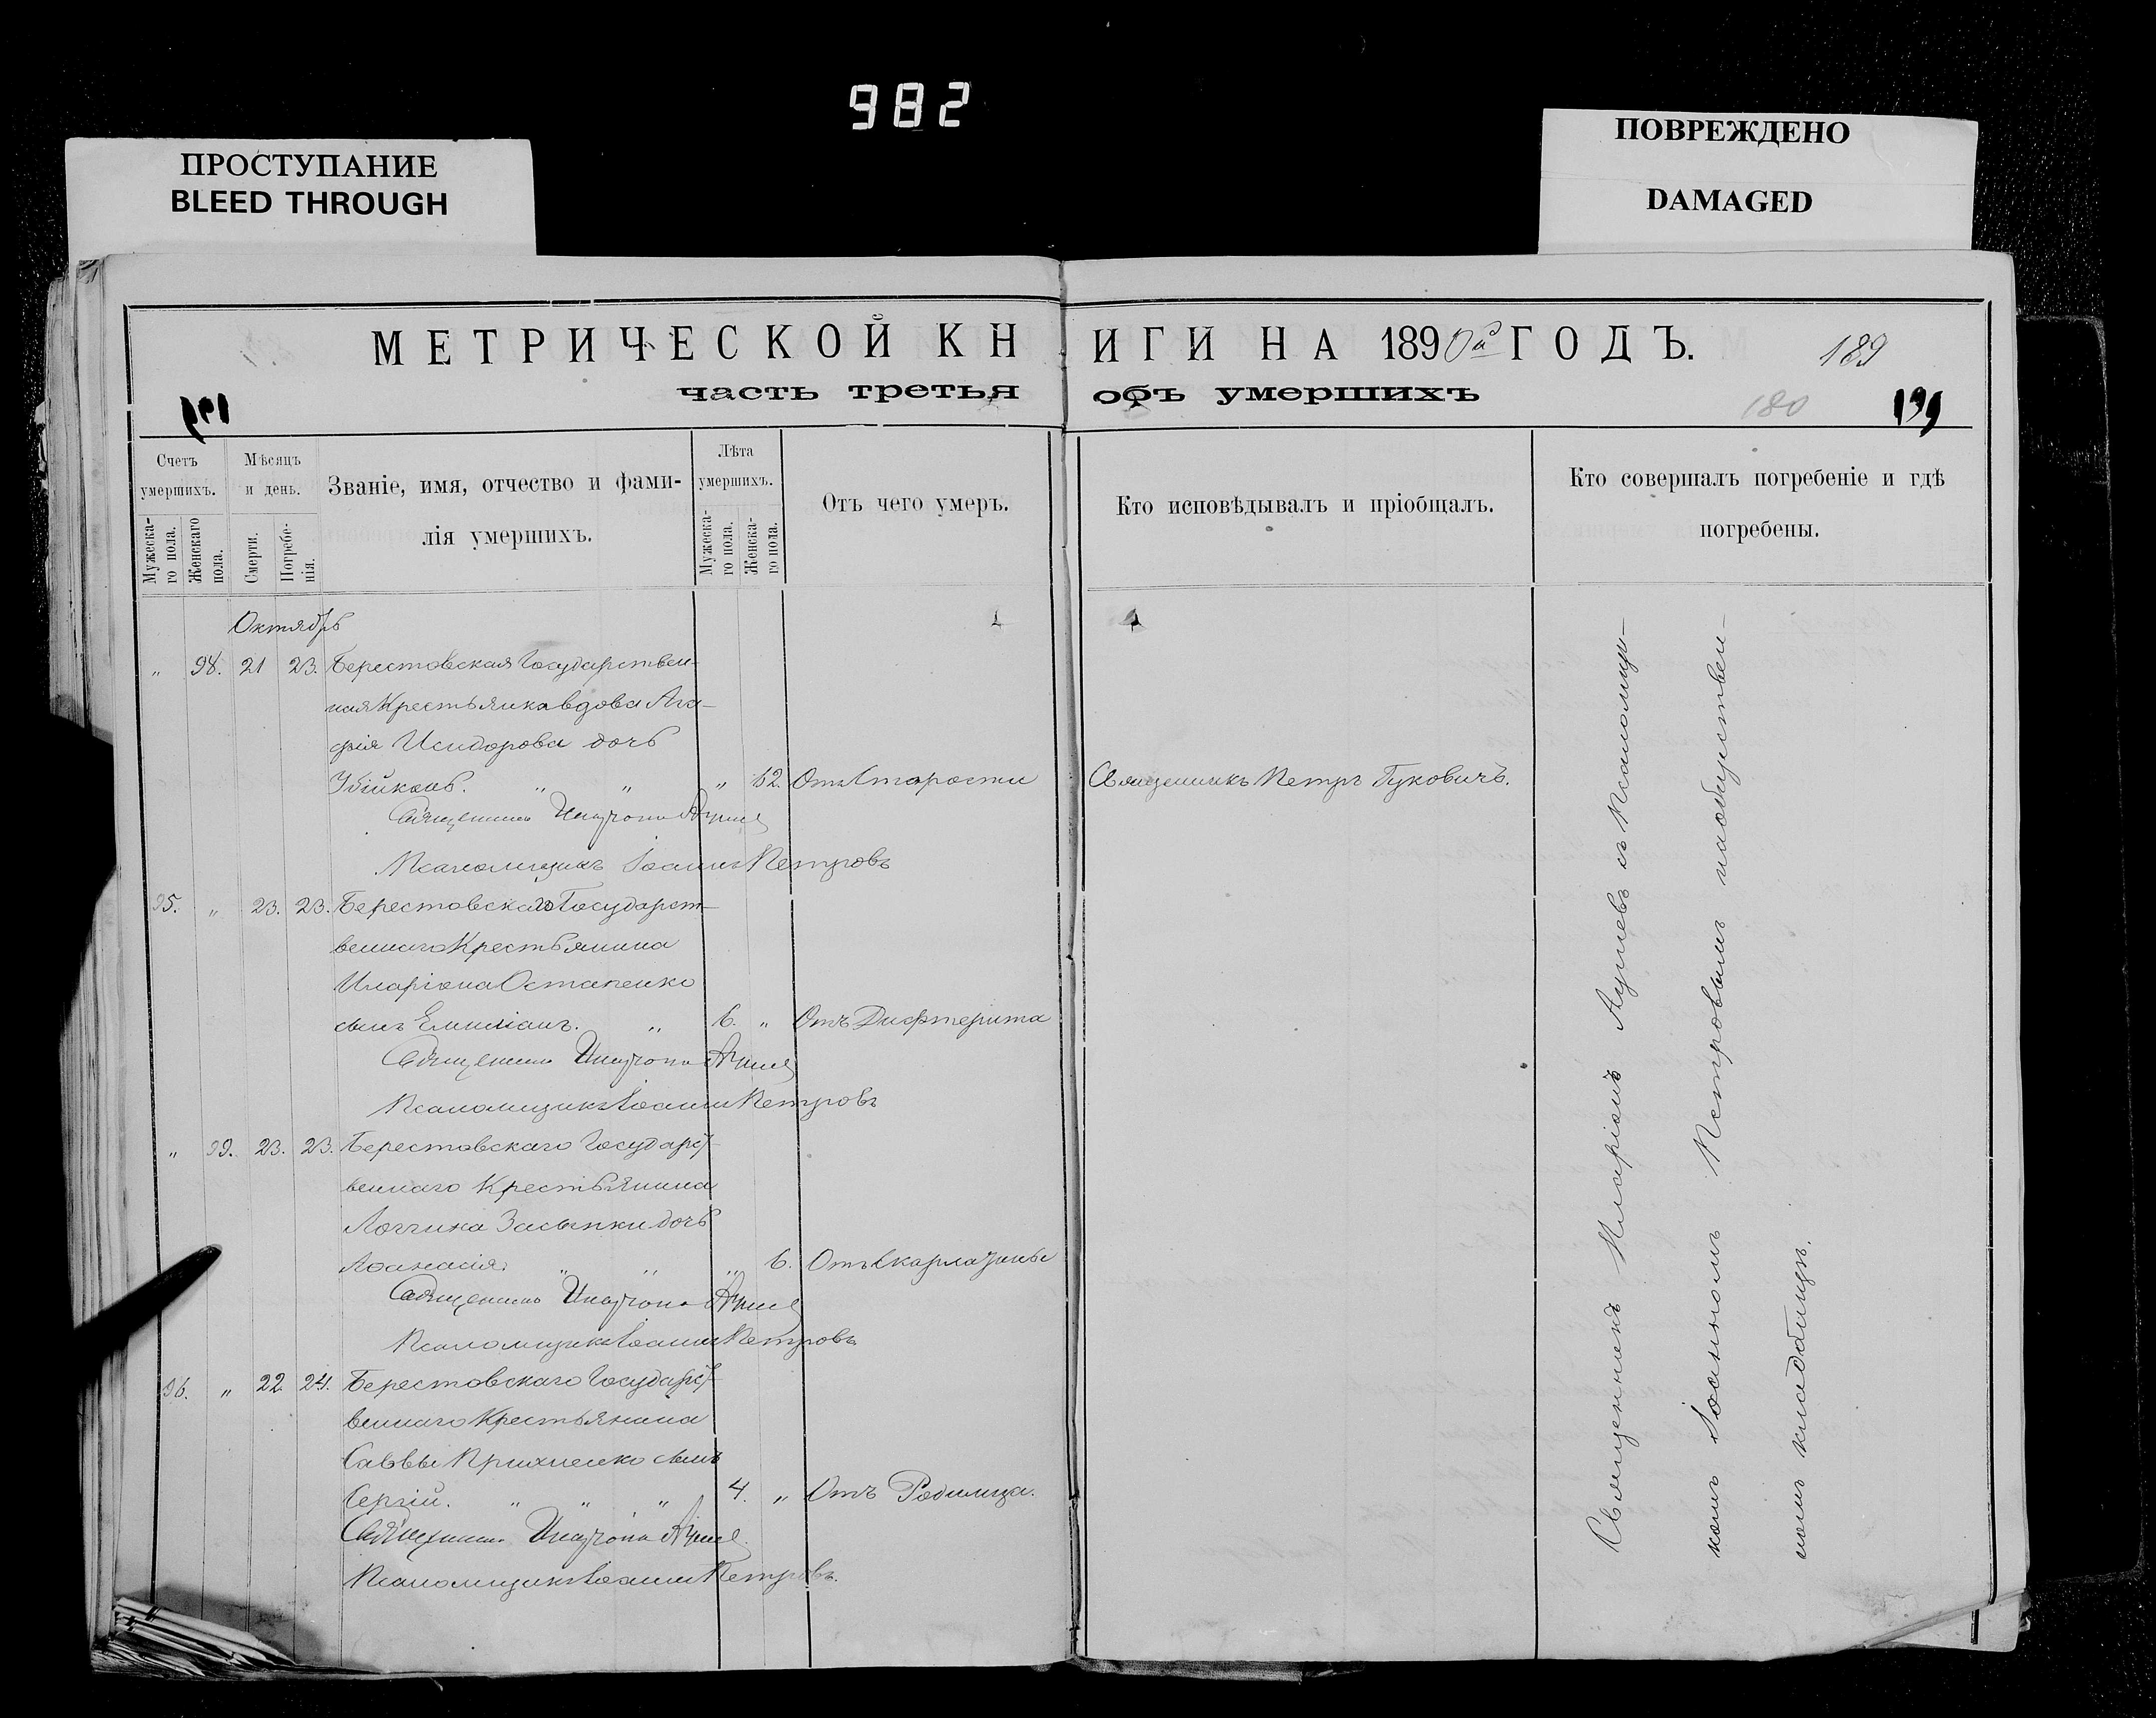 982
ПРОСТУПАНИЕ
BLEED THROUGH
ПОВРЕЖДЕНО
DAMAGED
МЕТРИЧЕСКОЙ КНИГИ НА 1890й ГОДЪ.
189
часть третья объ умершихъ
180
Счетъ умершихъ.
Мужеска-го пола.
Женскаго пола.
Мѣсяцъ и день.
Смерти.
Погребе-нія.
Званіе, имя, отчество и фами-
лія умершихъ.
Лѣта умершихъ.
Мужеска-го пола.
Женска-го пола.
Отъ чего умеръ.
Кто исповѣдывалъ и пріобщалъ.
Кто совершалъ погребеніе и гдѣ
погребены.
Октябрь
„ 98. 21 23. Берестовская Государствен-
ная Крестьянка вдова Ага-
фія Исидорова дочь
„ „ „ 62. Отъ Старости Священникъ Петръ Гуковичъ.
Священникъ
Псаломщикъ Іоаннъ Петровъ
95. „ 23. 23. Берестовскаго Государст-
веннаго Крестьянина
Иларіона Остапенко
сынъ Емиліанъ. „ 6. „ Отъ Дифтерита
Священникъ
Псаломщикъ Іоаннъ Петровъ
„ 99. 23. 23. Берестовскаго Государст-
веннаго Крестьянина
Логгина Засыпки дочь
Афанасія. „ „ „ 6. Отъ Скарлатины
Священникъ
Псаломщикъ Іоаннъ Петровъ
96. „ 22 24. Берестовскаго Государст-
веннаго Крестьянина
Саввы Прихненко сынъ
Сергій. „ „ „ 4. „ Отъ Родимца.
Священникъ
Псаломщикъ Іоаннъ Петровъ.
Священникъ Иларіонъ съ Псаломщи-
комъ Іоанномъ Петровымъ на общественномъ
номъ кладбищѣ.